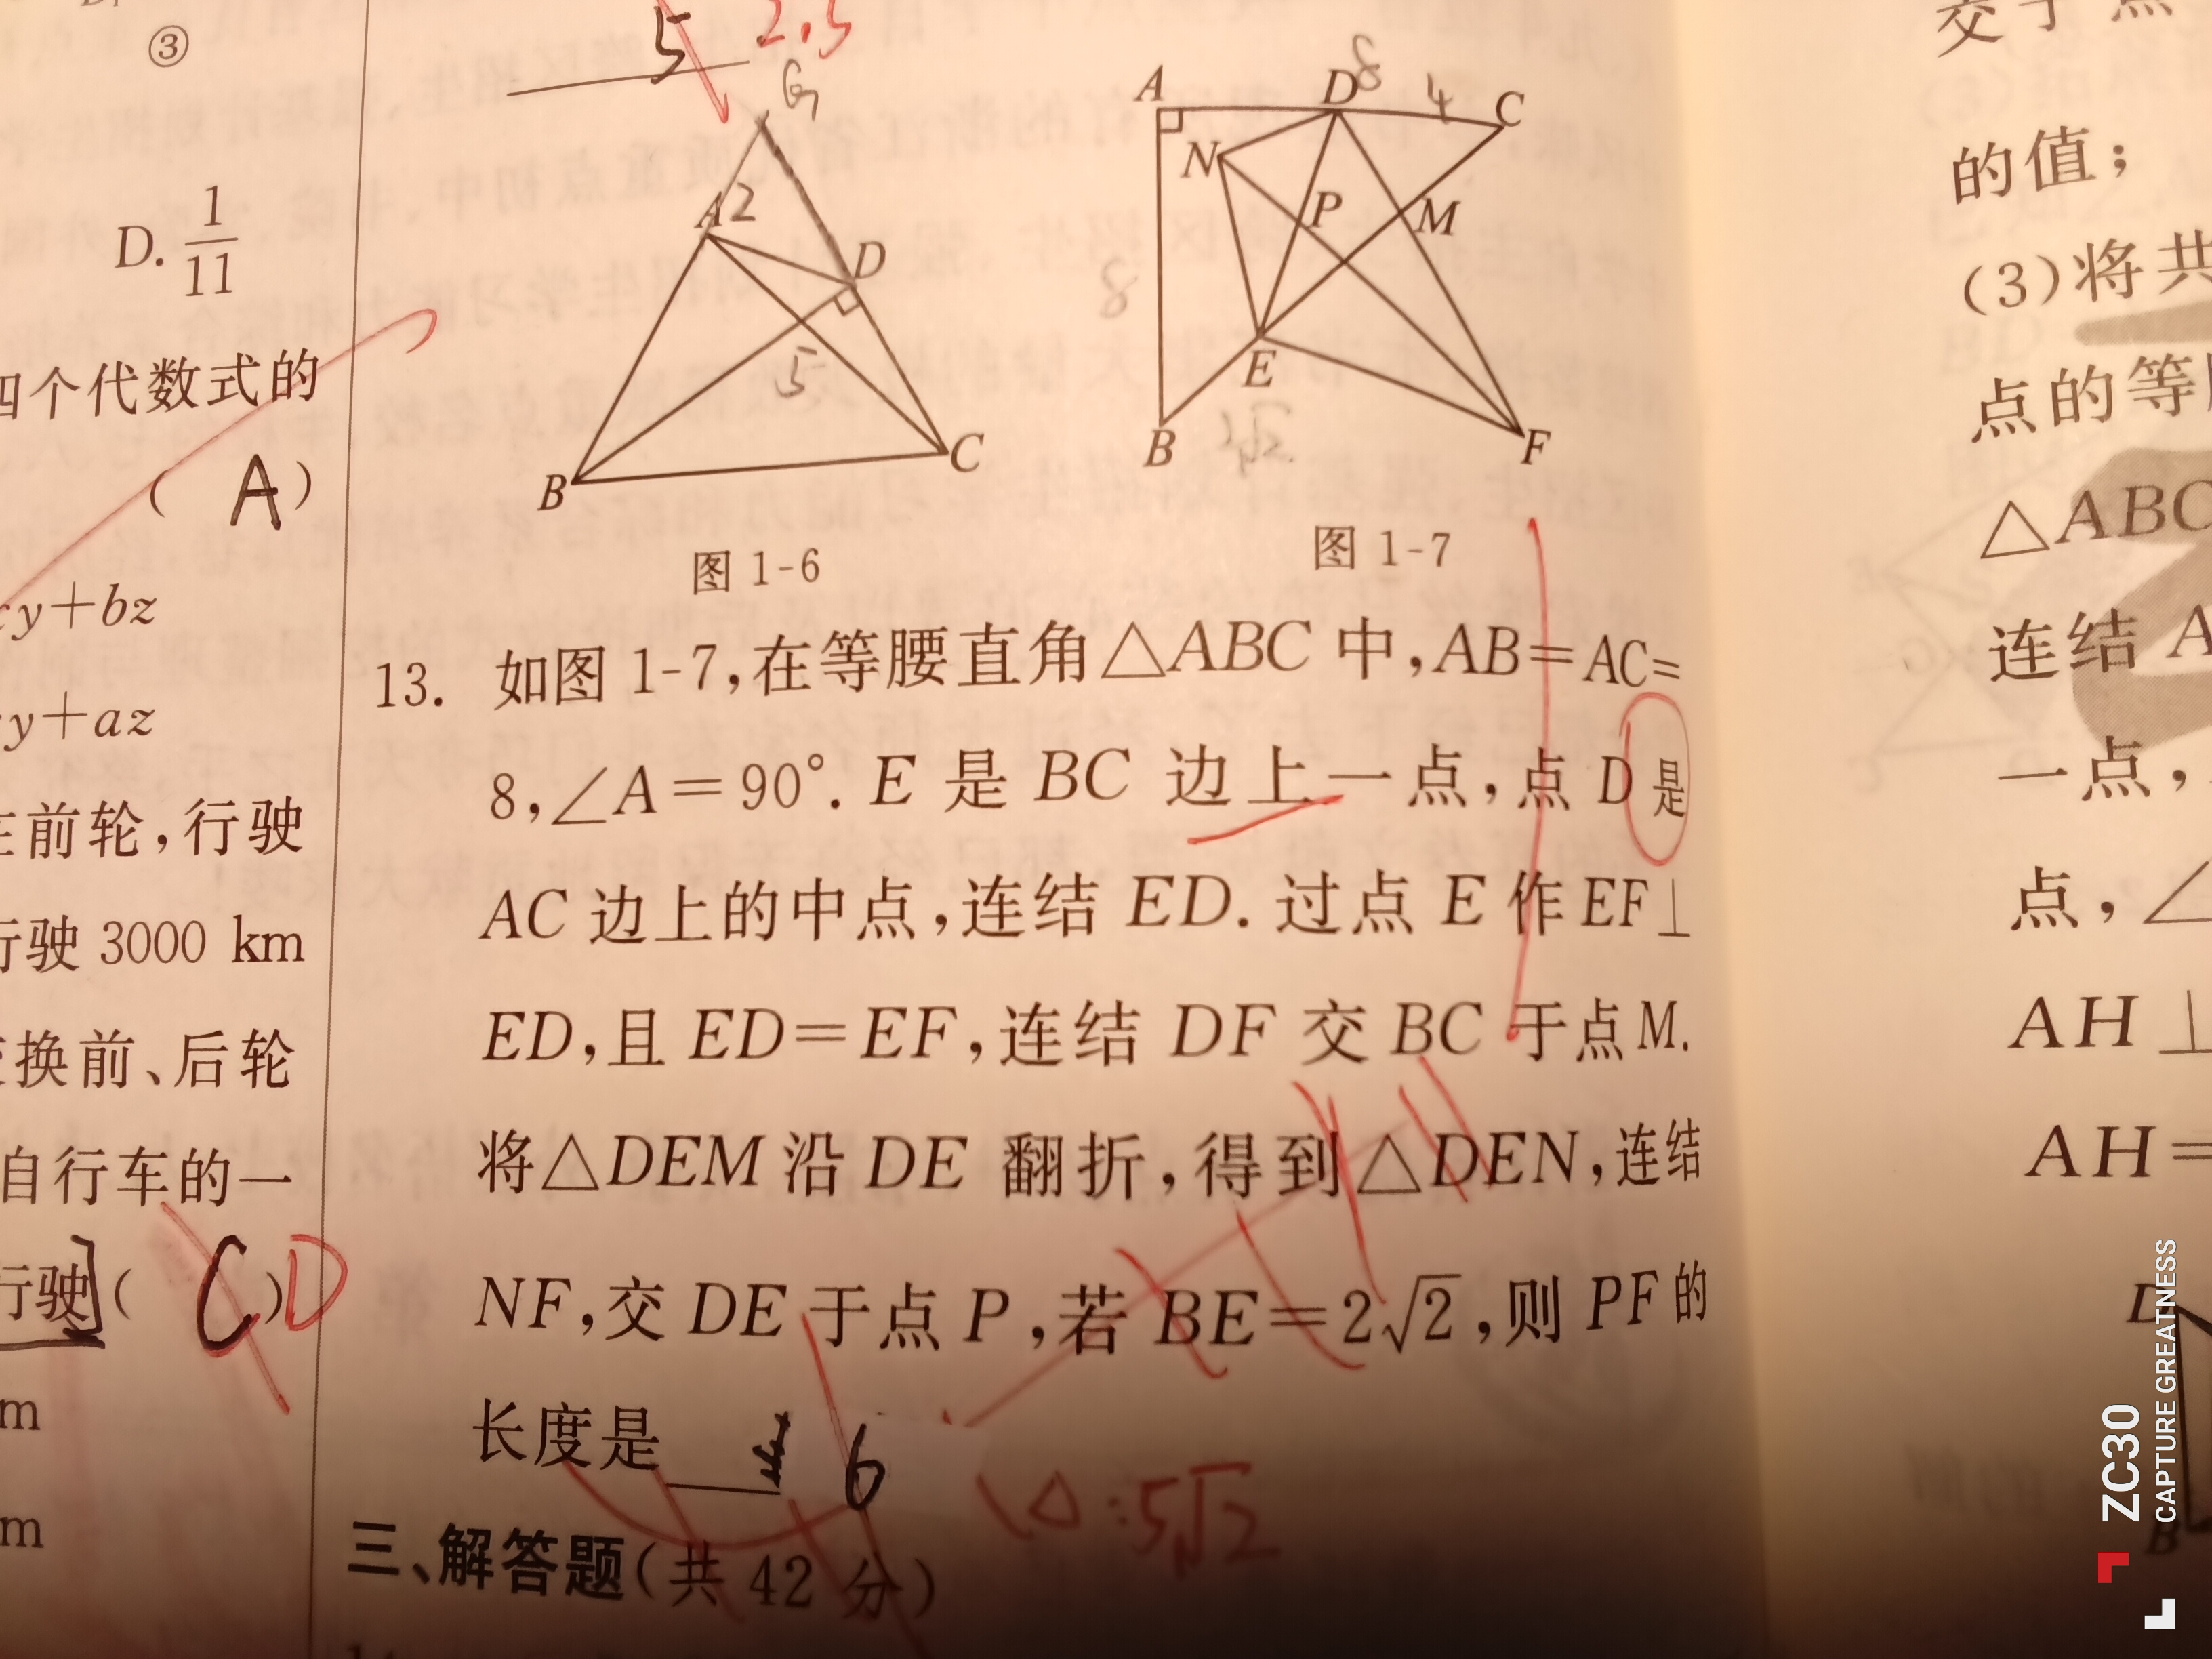 ③
D. 1/11
四个代数式的
( A )
cy+bz
y+az
在前轮,行驶
行驶 3000 km
变换前、后轮
自行车的一
行驶] ( C ) D
m
m
5 2.5
G
A 2
D
5
B
C
图 1-6
A
D
8
4
C
N
P
M
8
E
B
F
图 1-7
13. 如图 1-7,在等腰直角△ABC 中,AB=AC=
8,∠A=90°. E 是 BC 边上一点,点 D 是
AC 边上的中点,连结 ED. 过点 E 作 EF⊥
ED,且 ED=EF,连结 DF 交 BC 于点 M.
将△DEM 沿 DE 翻折,得到△DEN,连结
NF,交 DE 于点 P,若 BE=2√2,则 PF 的
长度是 6
5√2
三、解答题(共 42 分)
交于点
的值;
(3)将共
点的等
△ABC
连结 A
一点,
点,∠
AH⊥
AH=
D
B
ZC30
CAPTURE GREATNESS